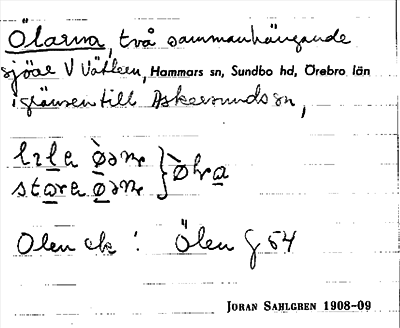 Ölarna, två sammanhängande
sjöar V Vättern, Hammars sn, Sundbo hd, Örebro län
i gränsen till Askersunds sn,
lila
stora
Ölen ek : Ölen G 54
JORAN SAHLGREN 1908-09